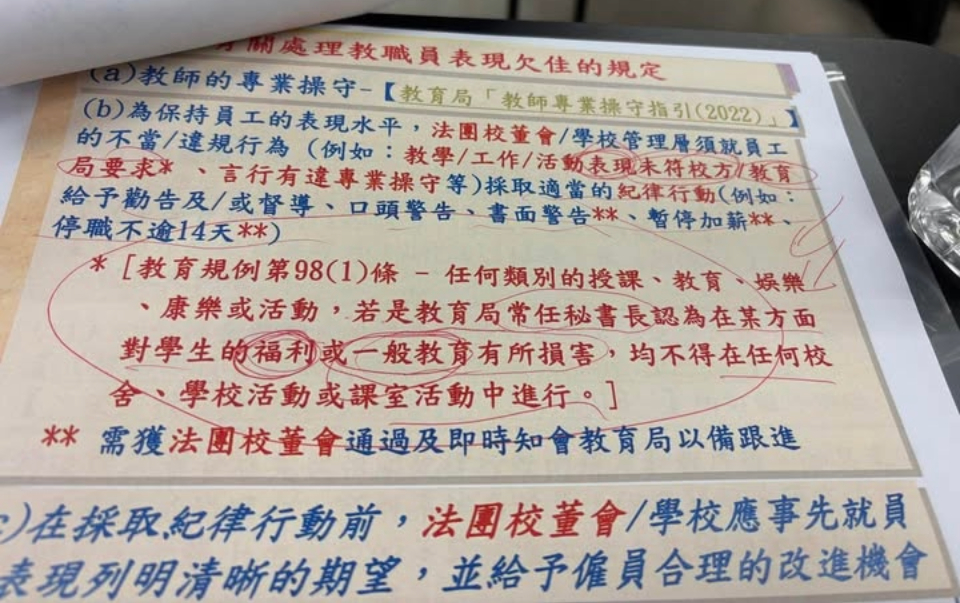 關處理教職員表現欠佳的規定
(a)教師的專業操守-【教育局「教師專業操守指引(2022)」】
(b)為保持員工的表現水平，法團校董會/學校管理層須就員工
的不當/違規行為（例如：教學/工作/活動表現未符校方/教育
局要求*、言行有違專業操守等)採取適當的紀律行動(例如：
給予勸告及/或督導、口頭警告、書面警告**、暫停加薪**、
停職不逾14天**)
*［教育規例第98(1)條 - 任何類別的授課、教育、娛樂
、康樂或活動，若是教育局常任秘書長認為在某方面
對學生的福利或一般教育有所損害，均不得在任何校
舍、學校活動或課室活動中進行。］
** 需獲法團校董會通過及即時知會教育局以備跟進
c)在採取紀律行動前，法團校董會/學校應事先就員
表現列明清晰的期望，並給予僱員合理的改進機會